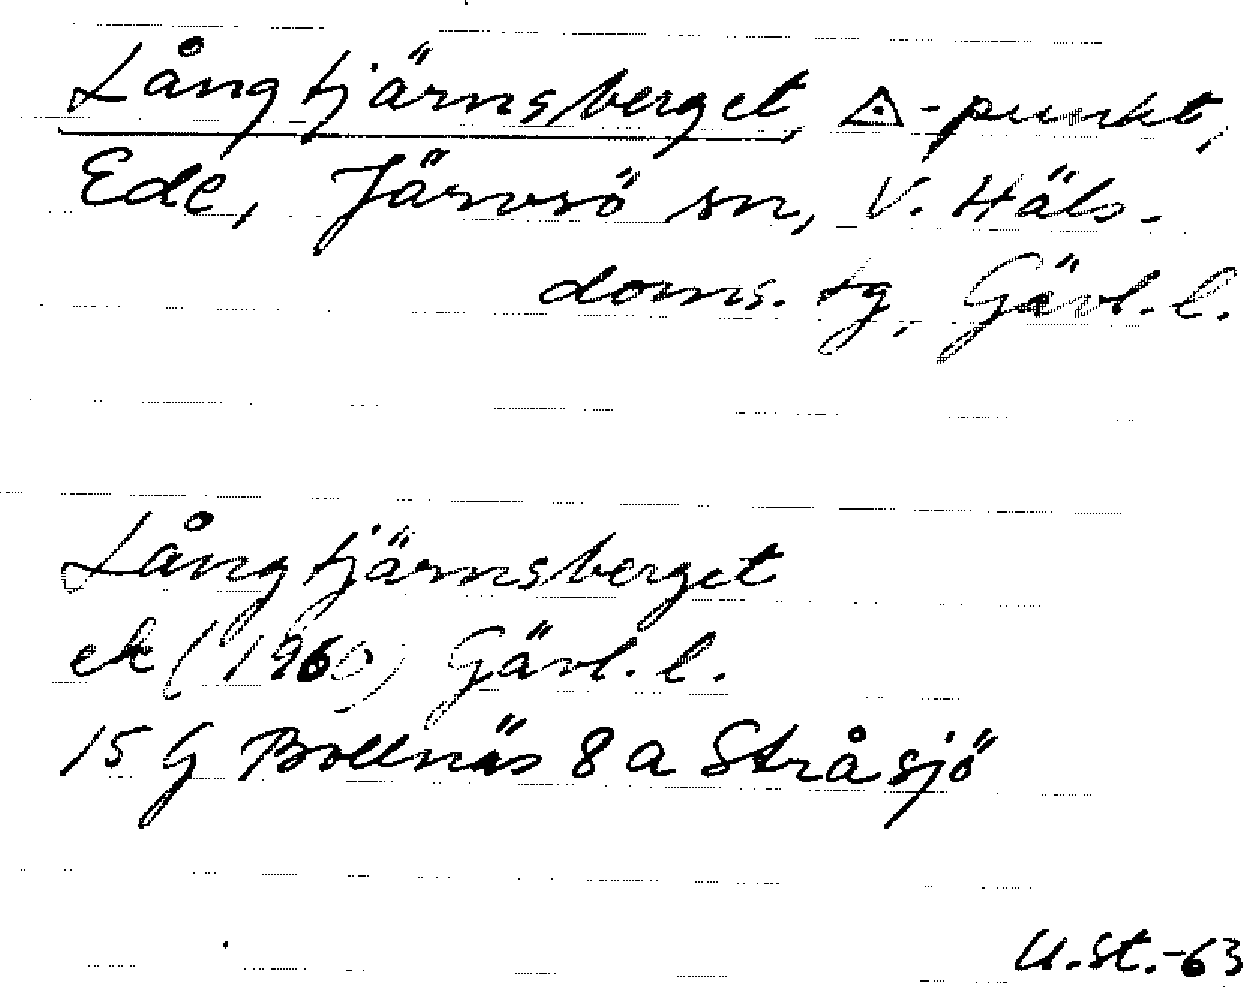 Långtjärnsberget, △-punkt,
Ede, Järvsö sn, V. Häls-
doms. tg, Gävl. l.
Långtjärnsberget
ek (1960) Gävl. l.
15 G Bollnäs 8 a Stråsjö
U.St.-63